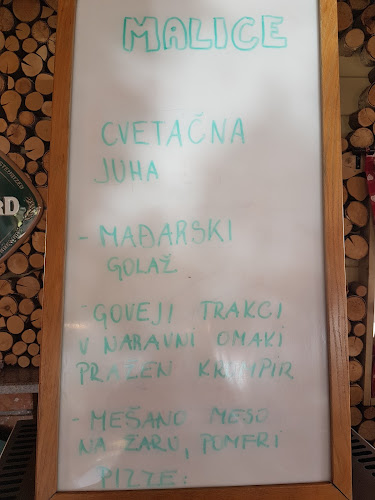 MALICE
CVETAČNA
JUHA
- MAĐARSKI
GOLAŽ
- GOVEJI TRAKCI
V NARAVNI OMAKI
PRAŽEN KROMPIR
- MEŠANO MESO
NA ŽARU, POMFRI
PIZZE: